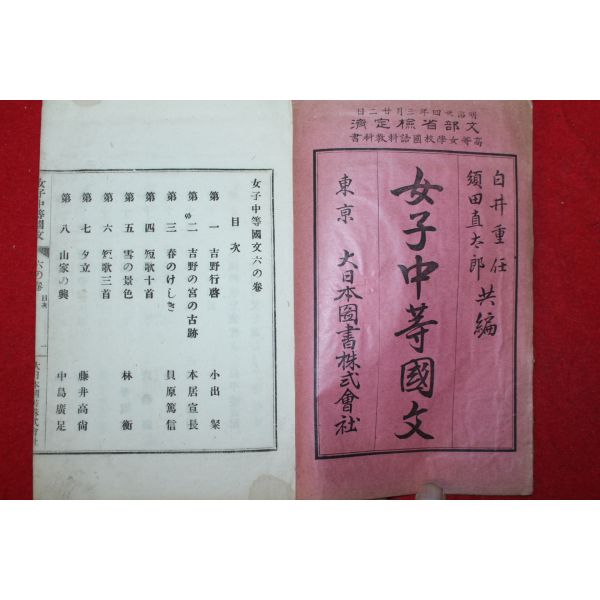 明治卅四年三月廿二日
文部省檢定濟
高等女學校國語科教科書
白井重任
須田直太郎 共編
女子中等國文
東京 大日本圖書株式會社
女子中等國文六の卷
目次
第一 吉野行啓 小出粲
第二 吉野の宮の古跡 本居宣長
第三 春のけしき 貝原篤信
第四 短歌十首
第五 雪の景色 林衡
第六 短歌三首
第七 夕立 藤井高尙
第八 山家の興 中島廣足
女子中等國文 六の卷 目次 一 大日本圖書株式會社